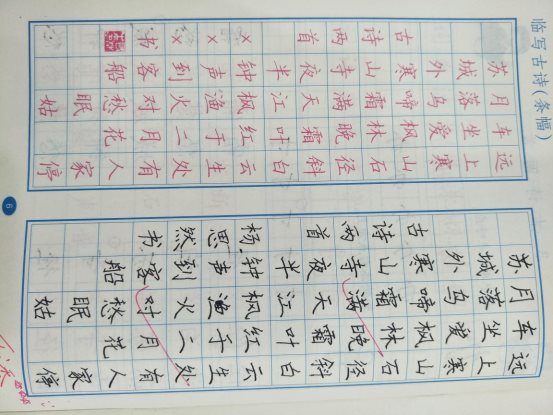 临写古诗(条幅)
远上寒山石径斜白云生处有人家停
车坐爱枫林晚霜叶红于二月花
月落乌啼霜满天江枫渔火对愁眠姑
苏城外寒山寺夜半钟声到客船
古诗两首 ×××书
远上寒山石径斜白云生处有人家停
车坐爱枫林晚霜叶红于二月花
月落乌啼霜满天江枫渔火对愁眠姑
苏城外寒山寺夜半钟声到客船
古诗两首 杨思然书
6